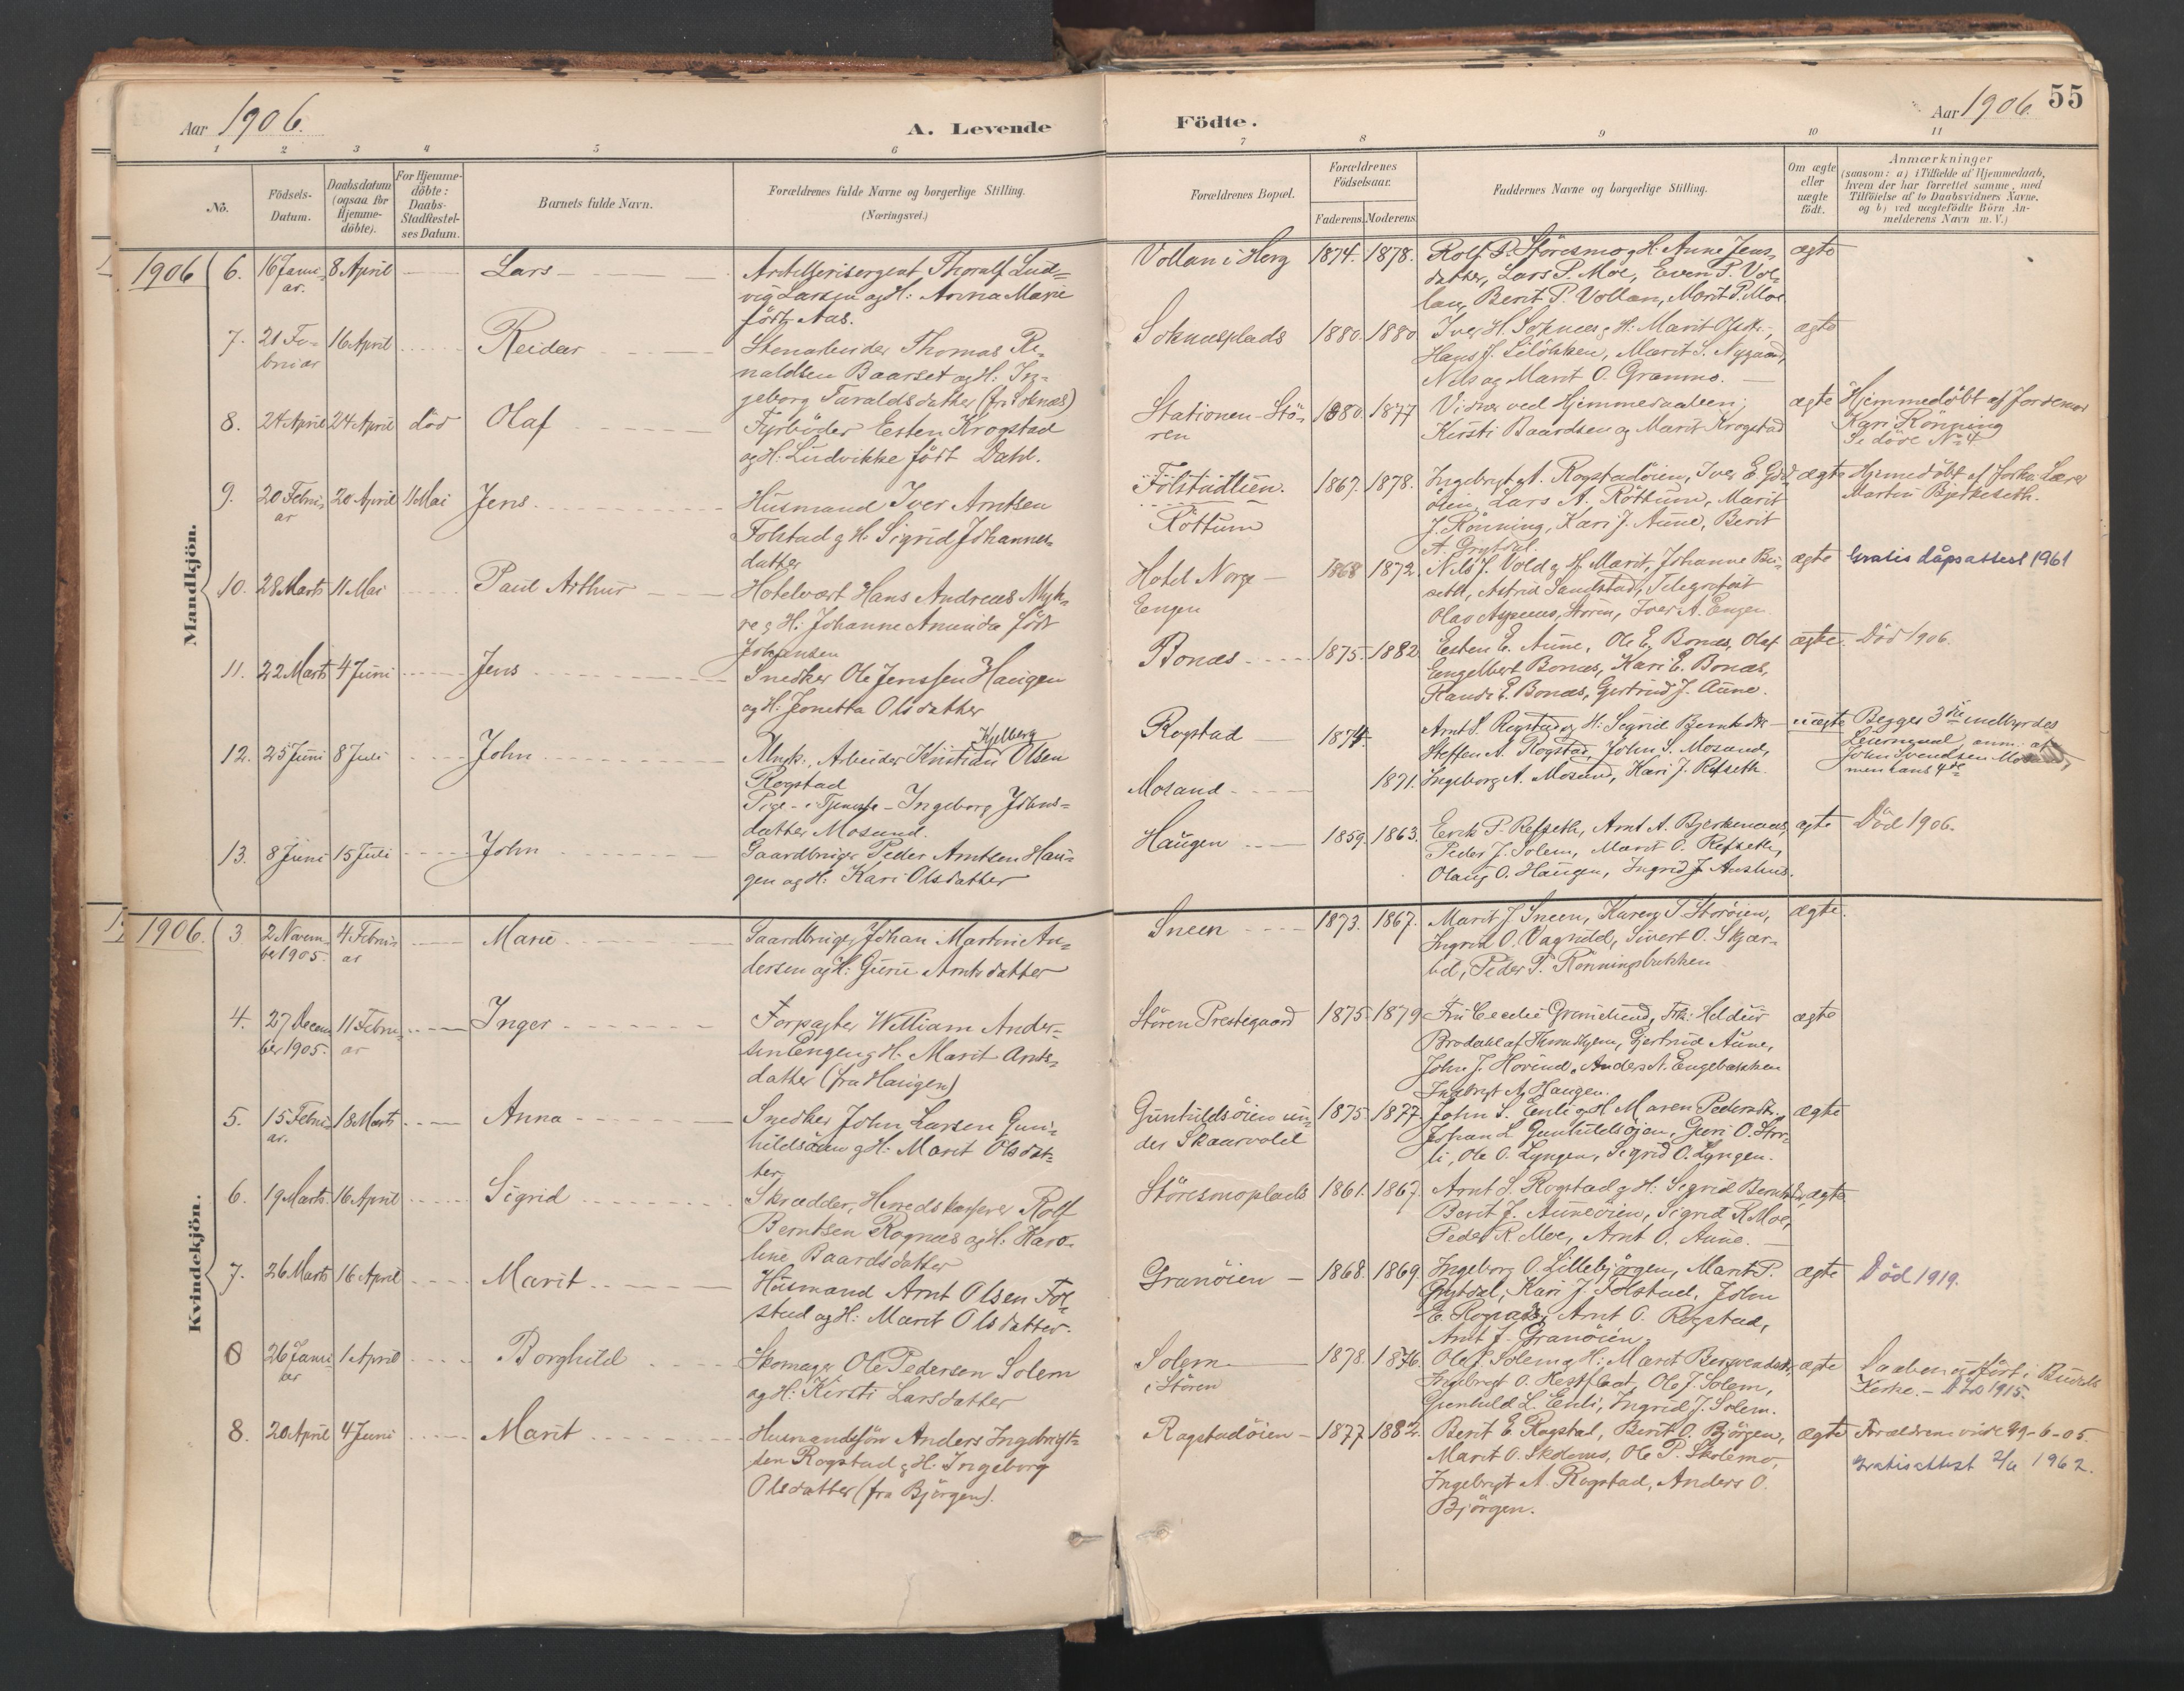 Aar 1906.
A. Levende
Födte.
Aar 1906.
55
1 2 3 4 5 6 7 8 9 10 11
No.
Födsels-
Datum.
Daabsdatum
(ogsaa for
Hjemme-
döbte).
For Hjemme-
döbte:
Daabs-
Stadfestel-
ses Datum.
Barnets fulde Navn.
Forældrenes fulde Navne og borgerlige Stilling.
(Næringsvei.)
Forældrenes Bopæl.
Forældrenes
Födselsaar.
Faderens. Moderens.
Faddernes Navne og borgerlige Stilling.
Om ægte
eller
uægte
födt.
Anmærkninger
(saasom: a) i Tilfælde af Hjemmedaab,
hvem der har forrettet samme, med
Tilföielse af to Daabsvidners Navne.
og b) ved uægtefödte Börn An-
melderens Navn m. V.)
Mandkjön.
1906
6. 16 Janu-
ar. 8 April Lars
Artillerisergent Thoralf Lud-
vig Larsen og H: Anna Marie
födt Aas.
Vollan i Horg 1874. 1878.
Rolf P. Störesmo g H. Anne Jens-
datter, Lars P. Moe, Even P. Vol-
lan, Berit P. Vollan, Marit P. Moe
ægte
7. 21 Fe-
bruar 16 April Reidar
Stenarbeider Thomas Re-
naldsen Baarset og H: In-
geborg Taraldsdatter (fr. Soknæs)
Soknesplads 1880. 1880.
Iver H. Soknæs g H: Marit Olsdtr.,
Hans J. Lilökken, Marit S. Nygaard,
Nels og Marit O. Granmo.
ægte
8. 24 April 24 April död Olaf
Fyrböder Esten Krogstad
og H: Ludvikke födt Dahl.
Stationen Stö-
ren 1880. 1877
Vidner ved Hjemmedaaben:
Kirsti Baardsen og Marit Krogstad
ægte
Hjemmedöbt af Jordemor
Kari Rönning
Se döde No 4
9. 20 Febru-
ar 20 April 11 Mai Jens
Husmand Iver Arntsen
Folstad g H: Sigrid Johannes-
datter
Folstadlien.
Röttum
1867. 1878.
Ingebrigt A. Rogstadöien, Iver E.
Lars A. Röttum, Marit
J. Rönning, Kari J. Aune, Berit
A. Grytdal.
ægte
Hjemedöbt af Lærer
Martin Bjerkeseth.
10. 28 Marts 11 Mai Paul Arthur
Hotelvært Hans Andreas Myh-
re g H: Johanne Amunda födt
Johansen
Hotel Norge
Engen
1868 1872.
Nels J. Vold g H. Marit, Johanne
Astrid Sandstad, Telegrafist
Olav Aspenes, Stören, Iver A. Engen.
ægte
Gratis dåpsattest 1961
11. 22 Marts 4 Juni Jens
Snedker Ole Jenssen Haugen
og H: Jonetta Olsdatter
Bonæs 1875. 1882
Esten E. Aune, Ole E. Bonæs, Olaf
Engelbert Bonæs, Kari E. Bonæs,
Randi E. Bonæs, Gertrud J. Aune.
ægte.
Död 1906.
12. 25 Juni 8 Juli John
Kjelberg
Ungk., Arbeider Kristian Olsen
Rogstad
Pige - i Tjeneste - Ingeborg Johns-
datter Mosand.
Rogstad 1874.
Mosand 1871.
Arnt S. Rogstad g H: Sigrid Berntsdtr
Steffen A. Rogstad, John S. Mosand,
Ingeborg A. Mosand, Kari J. Refseth.
uægte
Begges 3die indbyrdes
Leiermaal, anm. af
John Svendsen
men hans 4de
13. 8 Juni 15 Juli John
Gaardbruger Peder Arntsen Hau-
gen og H: Kari Olsdatter
Haugen 1859. 1863.
Erik P. Refseth, Arnt A. Bjerkenaas,
Peder J. Solem, Marit O. Refseth,
Olaug O. Haugen, Ingrid J. Aushus.
ægte
Död 1906.
Kvindekjön.
1906.
3 2 Novem-
ber 1905. 4 Febru-
ar Marie
Gaardbruger Johan Martin An-
dersen og H: Guru Arntsdatter
Sneen 1873. 1867.
Marit J. Sneen, Karen T. Storöien,
Ingrid O. Vagnild, Sivert O. Skjær-
Peder P. Rönningsbakken
ægte.
4. 27 Decem-
ber 1905. 11 Febru-
ar Inger
Forpagter William Ander-
sen Engen g H: Marit Arnts-
datter (fra Haugen)
Stören Prestegaard 1875. 1879.
Fru Cecilie Grönelund, Frk: Heldur
Brodahl af Throndhjem, Gertrud Aune,
John J. Hovind, Anders A. Engebakken
Ingebrigt A. Haugen.
ægte
5. 15 Febru-
ar. 18 Marts Anna
Snedker John Larsen Gun-
hildsöien g H: Marit Olsdat-
ter
Gunhildsöien un-
der Skaarvold
1875. 1877.
John S. Enli g H Maren Pedersdtr.,
Johan L Gunhildsöien, Guri O. Stor-
li, Ole O. Lyngen, Sigrid O. Lyngen.
ægte
6. 19 Marts 16 April Sigrid
Skrædder, Herredskasserer Rolf
Berntsen Rognæs og H: Karo-
line Baardsdatter
Störesmoplads 1861. 1867.
Arnt S. Rogstad g H: Sigrid Berntsdtr,
Berit J. Auneöien, Sigrid K Moe,
Peder R. Moe, Arnt O. Aune.
ægte
7. 26 Marts 16 April Marit
Husmand Arnt Olsen Fol-
stad og H: Marit Olsdatter.
Granöien 1868. 1869
Ingeborg O. Lillebjörgen, Marit P.
Grytdal, Kari J. Folstad, John
E. Rognæs, Arnt O. Rogstad,
Arnt J. Granöien.
ægte
Död 1919.
8 26 Janu-
ar 1 April Borghild
Skomager Ole Pedersen Solem
og H: Kirsti Larsdatter
Solem
i Stören
1878. 1876.
Ole J. Solem g H: Marit Bergsvendsdtr,
Ingebrigt O. Hestflaat, Ole J. Solem,
Gunhild L. Enli, Ingrid J. Solem.
ægte
Daaben udfört i Budals
Kirke. - Död 1915.
8. 20 April 4 Juni Marit
Husmandssön Anders Ingebrigt-
sen Rogstad g H: Ingeborg
Olsdatter (fra Björgen).
Rogstadöien 1877 1882.
Berit E. Rogstad, Berit O. Björgen,
Marit O. Skolemo, Ole P. Skolemo,
Ingebrigt A. Rogstad, Anders O.
Björgen.
ægte
Forældrene viede 29-6-05.
Gratisattest 1962.